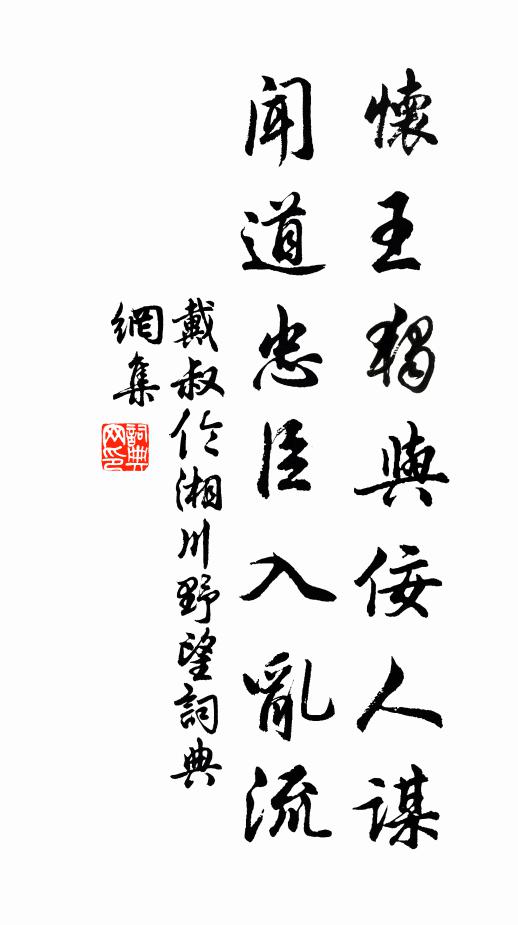 懷王獨與佞人謀
聞道忠臣入亂流
戴叔伦湘川野望詞典
網集
詞典
网印